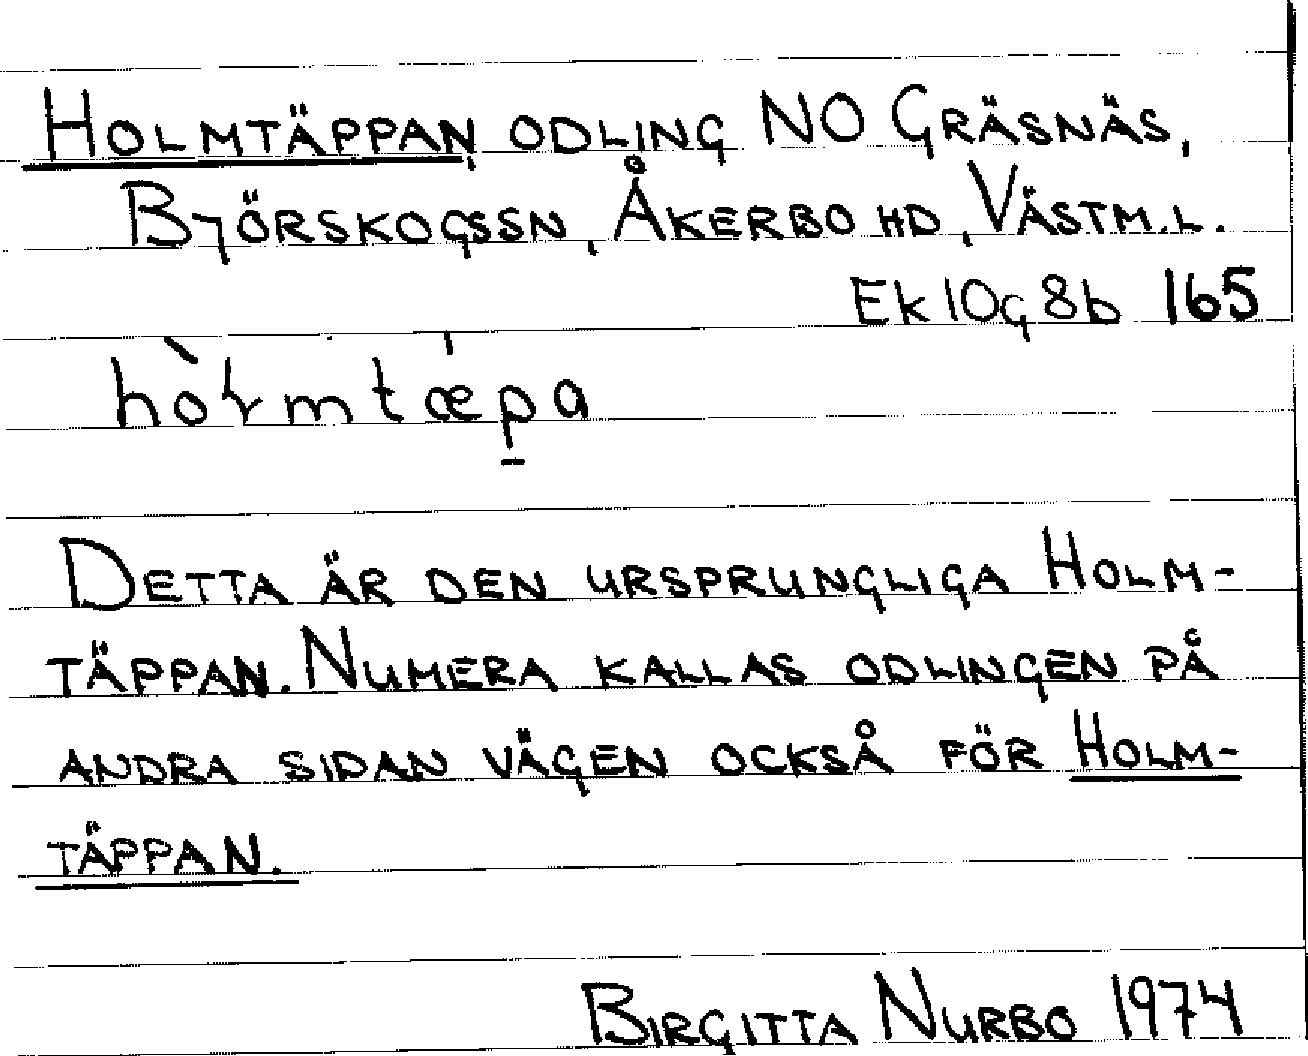 HOLMTÄPPAN, ODLING NO GRÄSNÄS,
BJÖRSKOGSSN, ÅKERBO HD, VÄSTM.L.
Ek 10g 8b 165
DETTA ÄR DEN URSPRUNGLIGA HOLM-
TÄPPAN. NUMERA KALLAS ODLINGEN PÅ
ANDRA SIDAN VÄGEN OCKSÅ FÖR HOLM-
TÄPPAN.
BIRGITTA NURBO 1974